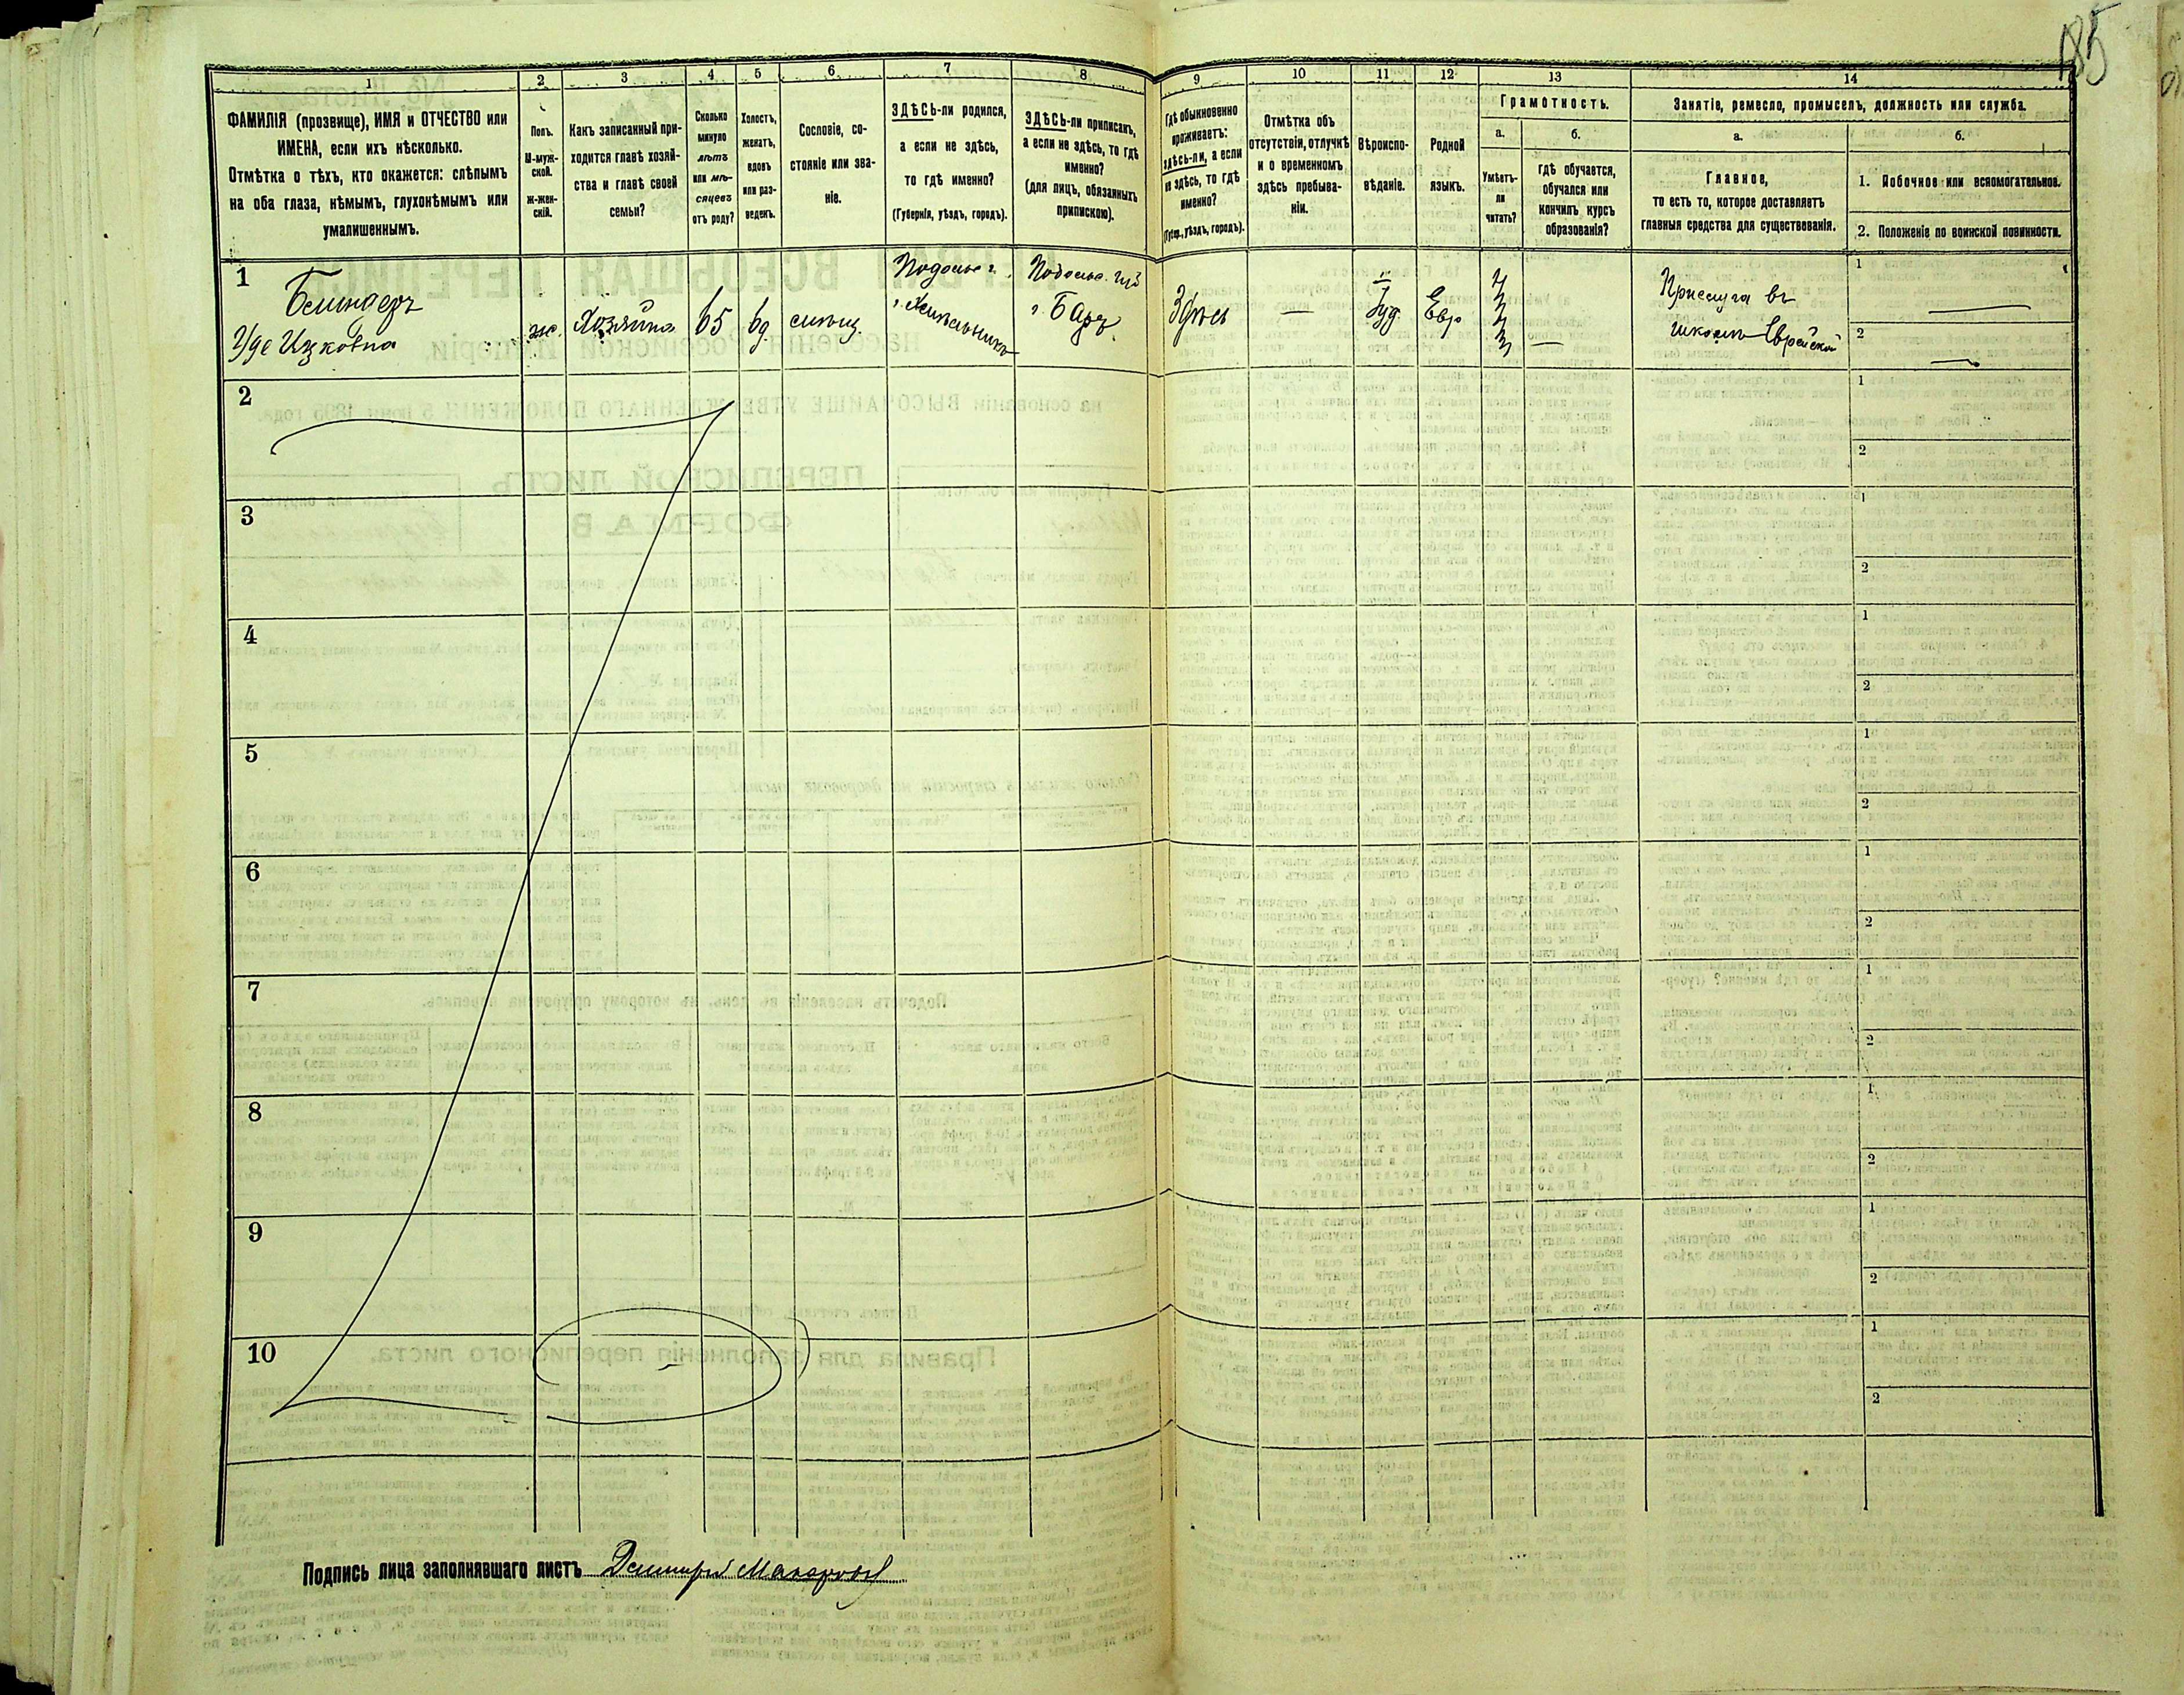 185
1 2 3 4 5 6 7 8 9 10 11 12 13 14
ФАМИЛІЯ (прозвище), ИМЯ и ОТЧЕСТВО или
ИМЕНА, если ихъ нѣсколько.
Отмѣтка о тѣхъ, кто окажется: слѣпымъ
на оба глаза, нѣмымъ, глухонѣмымъ или
умалишеннымъ.
Полъ.
М-муж-
ской.
Ж-жен-
скій.
Какъ записанный при-
ходится главѣ хозяй-
ства и главѣ своей
семьи?
Сколько
минуло
лѣтъ
или мѣ-
сяцевъ
отъ роду?
Холостъ,
женатъ,
вдовъ
или раз-
веденъ.
Сословіе, со-
стояніе или зва-
ніе.
ЗДѢСЬ-ли родился,
а если не здѣсь,
то гдѣ именно?
(Губернія, уѣздъ, городъ).
ЗДѢСЬ-ли приписанъ,
а если не здѣсь, то гдѣ
именно?
(для лицъ, обязанныхъ
припискою).
Гдѣ обыкновенно
проживаетъ:
здѣсь-ли, а если
не здѣсь, то гдѣ
именно?
(Губер., уѣздъ, городъ).
Отмѣтка объ
отсутствіи, отлучкѣ
и о временномъ
здѣсь пребыва-
ніи.
Вѣроиспо-
вѣданіе.
Родной
языкъ.
Грамотность.
а.
Умѣетъ-
ли
читать?
б.
Гдѣ обучается,
обучался или
кончилъ курсъ
образованія?
Занятіе, ремесло, промыселъ, должность или служба.
а.
Главное,
то есть то, которое доставляетъ
главныя средства для существованія.
б.
1. Побочное или вспомогательное.
2. Положеніе по воинской повинности.
1
Ицковна
ж.
Хозяйка
65
вд.
Подольс. г.
г. Хмельникъ
Подольс. губ
г. Баръ
Здѣсь
—
Іуд.
Евр
—
Прислуга въ
школѣ Еврейской
1 —
2 —
2
1
2
3
1
2
4
1
2
5
1
2
6
1
2
7
1
2
8
1
2
9
1
2
10
1
2
Подпись лица заполнявшаго листъ